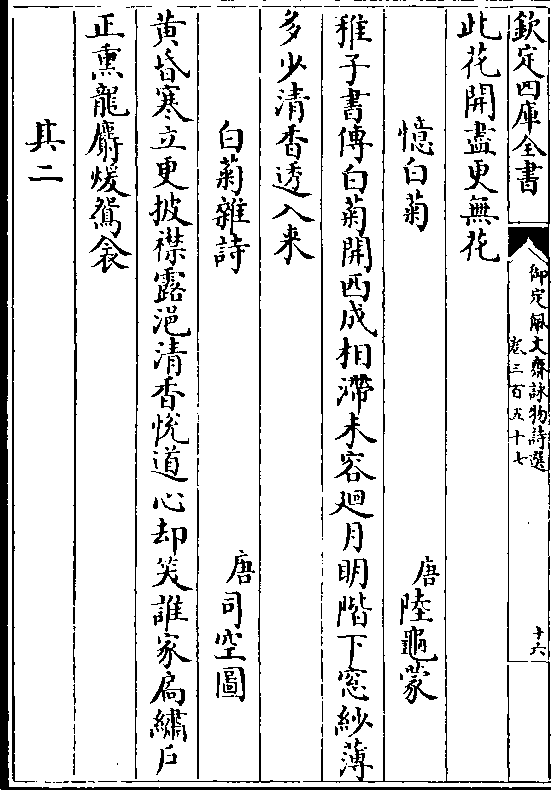 欽定四庫全書
御定佩文齋詠物詩選
卷三百五十七
十六
此花開盡更無花
憶白菊
唐陸龜蒙
稚子書傳白菊開西成相滯未容廻月明階下窓紗薄
多少清香透入来
白菊雜詩
唐司空圖
黄昏寒立更披襟露浥清香悅道心却笑誰家扄繡戶
正熏龍麝煖鴛衾
其二